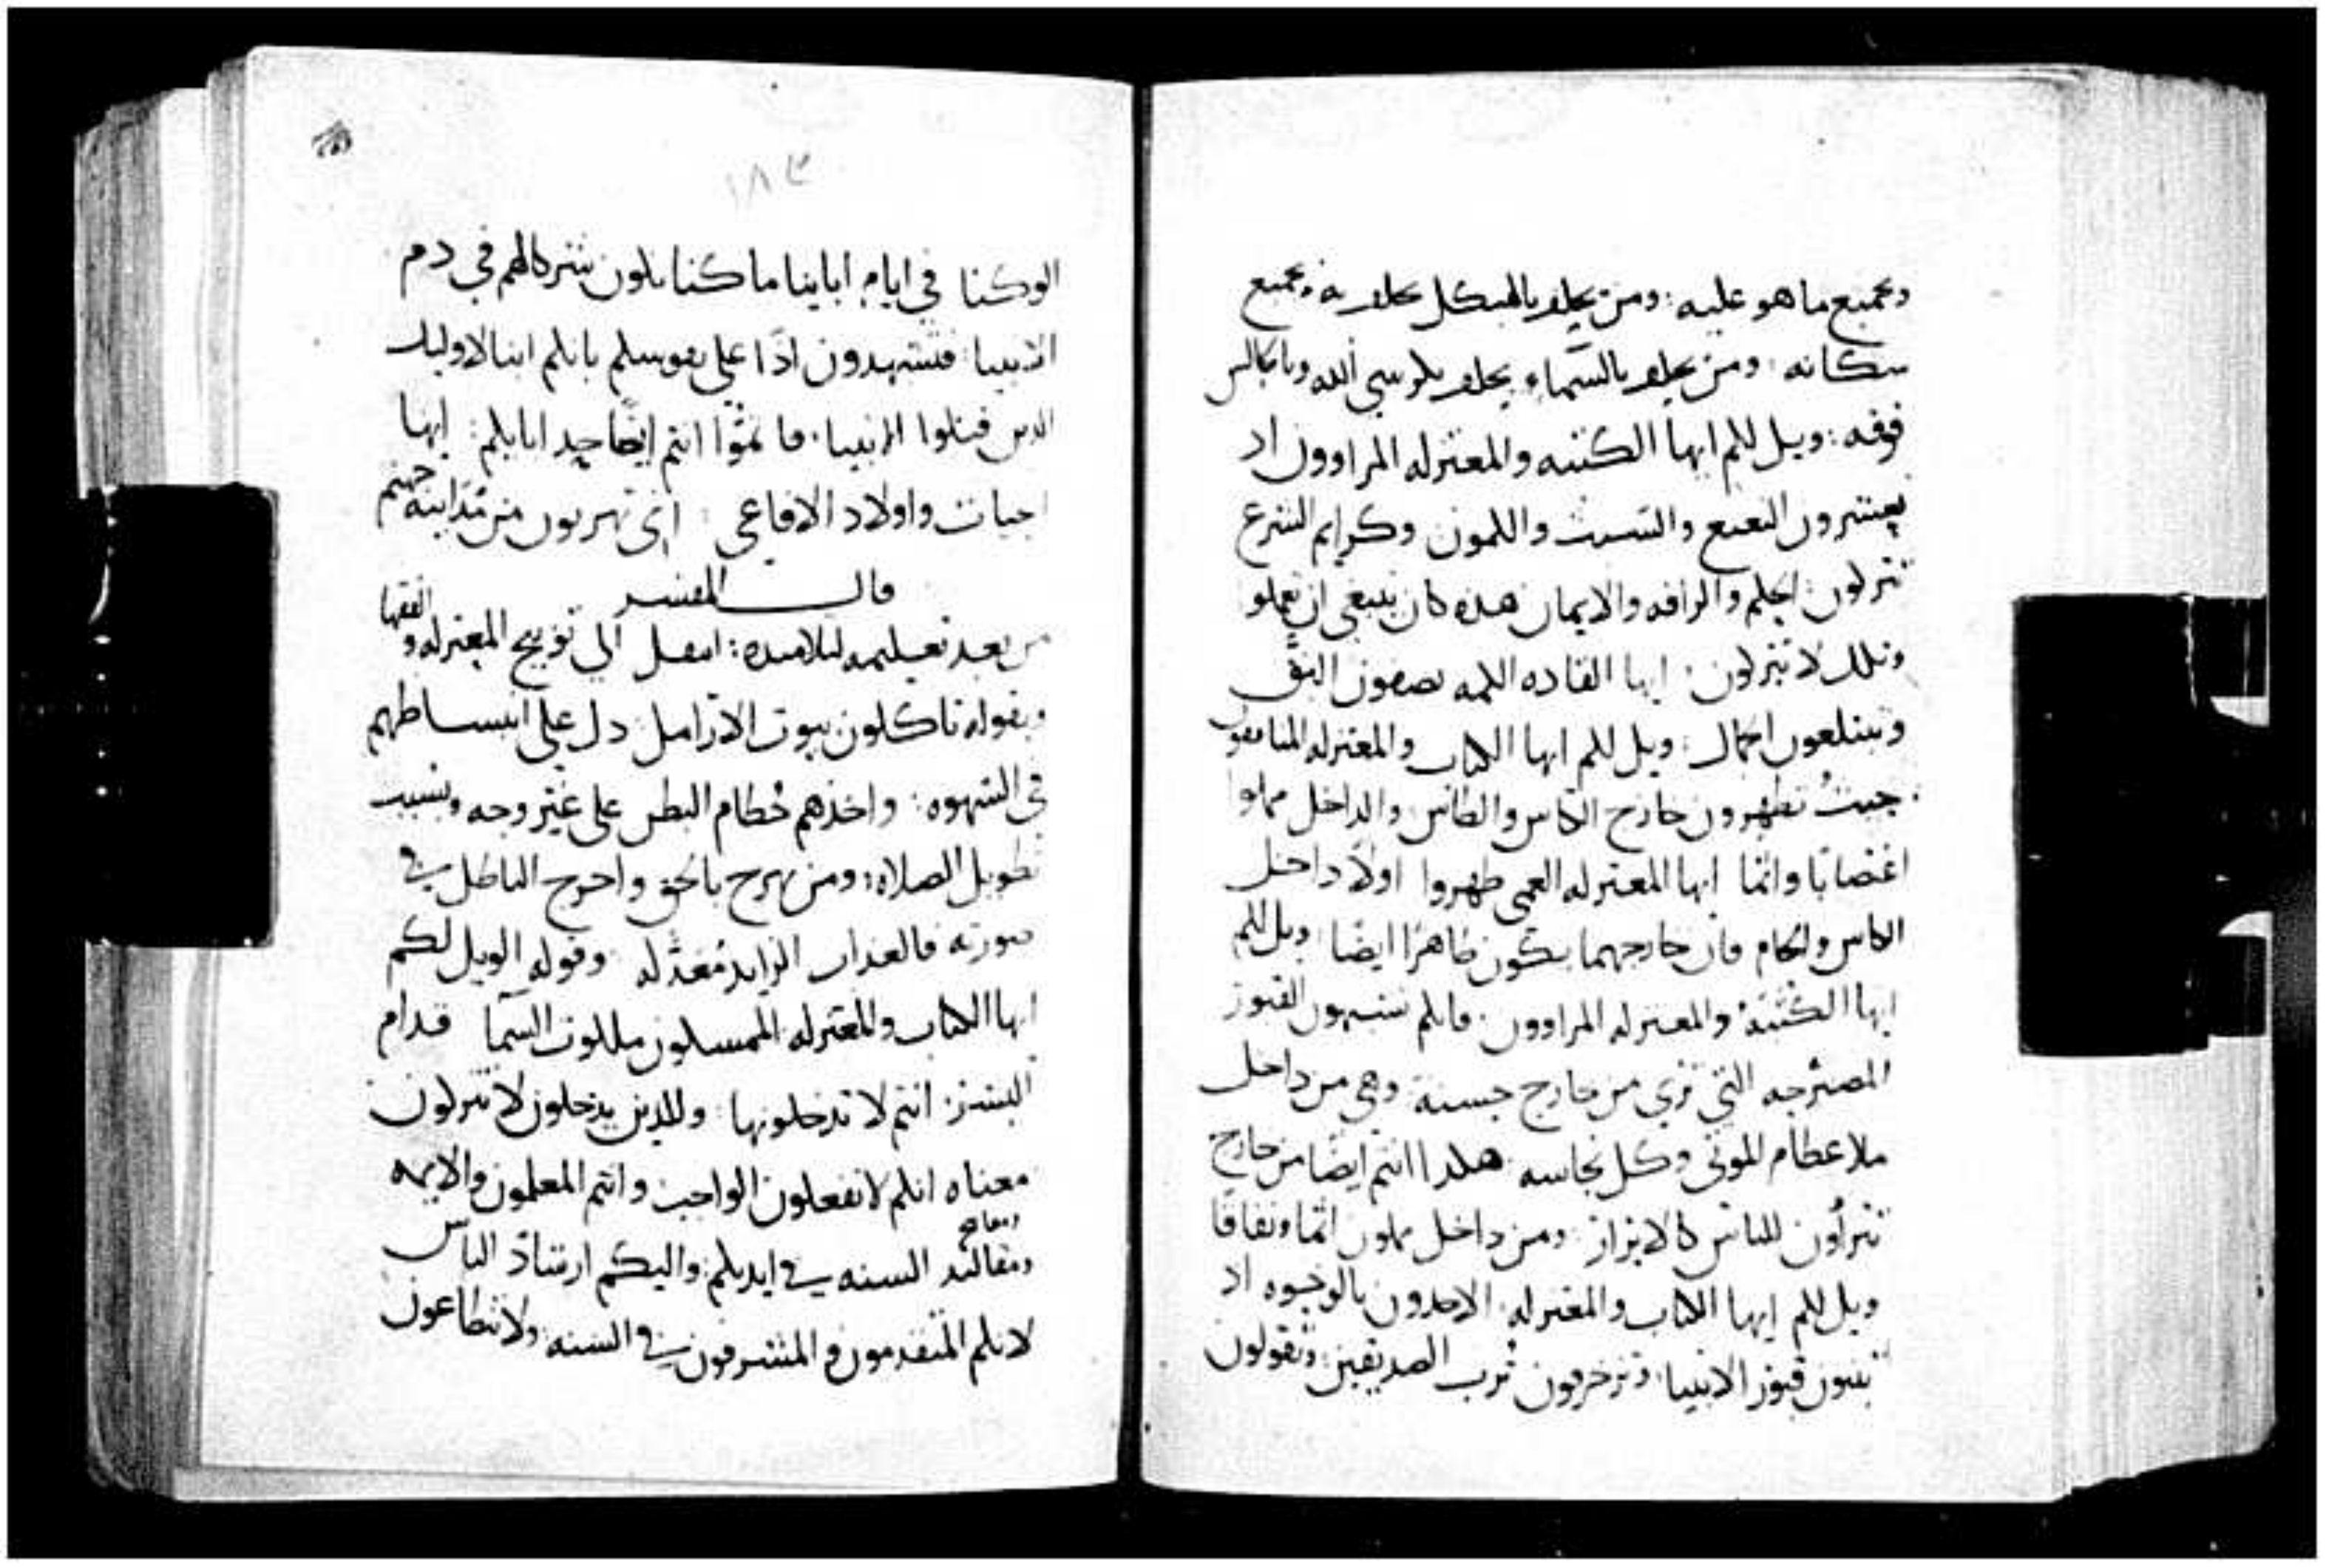 وبجميع ما هو عليه ؛ ومن يحلف بالهيكل يحلف به وبجميع
سكانه ؛ ومن يحلف بالسماء يحلف بكرسي الله وبالجالس
فوقه ؛ ويل لكم ايها الكتبه والمعتزله المراوون اد
تعشرون النعنع والشبث والكمون وكرايم الشرع
تتركون ؛ الحكم والرافه والايمان هده كان ينبغي ان تعملو
وتلك لا تتركون ؛ ايها القاده الكمه تصفون البق
وتبتلعون الجمال ؛ ويل لكم ايها الكتاب والمعتزله المنافقون
حيث تطهرون خارج الكاس والطاس والداخل مملوا
اغتصابا واثما ايها المعتزله العمي طهروا اولا داخل
الكاس والجام فان خارجهما يكون طاهرا ايضا ويل لكم
ايها الكتبة والمعتزله المراوون ؛ فانكم تشبهون القبور
المصرجه التي تري من خارج حسنة وهي من داخل
ملا عظام الموتى وكل نجاسه هكدا انتم ايضا من خارج
تتراون للناس كالابرار ؛ ومن داخل مملون اثما ونفاقا
ويل لكم ايها الكتاب والمعتزله الاخدون بالوجوه اد
تبنون قبور الانبيا ؛ وتزخرفون ترب الصديقين ؛ وتقولون
١٨٣
الو كنا في ايام ابايينا ما كنا نكون شركالهم في دم
الانبيا ؛ فتشهدون ادا على نفوسكم بانكم ابنا الاوليك
الدين قتلوا الانبيا ؛ فا تموا انتم ايضا حد ابايكم ؛ ايها
احيات واولاد الافاعي ؛ اين تهربون من مداينة جهنم
قال المفسر
من بعد تعليمه لتلاميده ؛ انتقل الي توبيخ المعتزله والفقها
وبقوله تاكلون بيوت الارامل ؛ دل على انبساطهم
في الشهوه ؛ واخذهم حطام البطر على غير وجه وبسبب
تطويل الصلاه ؛ ومن بهرج بالحق واخرج الباطل في
صورته فالعداب الزايد معد له وقوله الويل لكم
ايها الكتاب والمعتزله الممسكون ملكوت السما قدام
البشر ؛ انتم لا تدخلونها ؛ وللدين يدخلون لا تتركون
معناه انكم لا تفعلون الواجب وانتم المعلمون والايمه
ومفاتيح
ومقاليد السنه في ايديكم ؛ واليكم ارشاد الناس
لانكم المتقدمون و المتشرفون في السنه ولا تطاعون